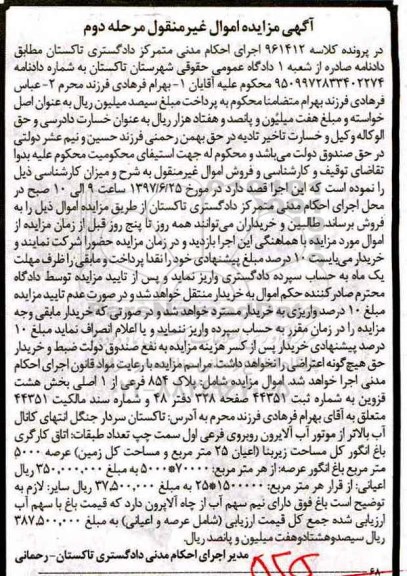 آگهی مزایده اموال غیر منقول مرحله دوم
در پرونده کلاسه ۹۶۱۴۱۲ اجرای احکام مدنی متمرکز دادگستری تاکستان مطابق
دادنامه صادره از شعبه ۱ دادگاه عمومی حقوقی شهرستان تاکستان به شماره دادنامه
۹۵۰۹۹۷۲۸۳۳۴۰۲۲۷۴ محکوم علیه آقایان ۱- بهرام فرهادی فرزند محرم ۲- عباس
فرهادی فرزند بهرام متضامنا محکوم به پرداخت مبلغ سیصد میلیون ریال به عنوان اصل
خواسته و مبلغ هفت میلیون و پانصد و هفتاد هزار ریال به عنوان خسارت دادرسی و حق
الوکاله وکیل و خسارت تاخیر تادیه در حق بهمن رحمنی فرزند حسین و نیم عشر دولتی
در حق صندوق دولت می‌باشد و محکوم له جهت استیفای محکومیت محکوم علیه بدوا
تقاضای توقیف و کارشناسی و فروش اموال غیرمنقول به شرح و میزان کارشناسی ذیل
را نموده است که این اجرا قصد دارد در مورخ ۱۳۹۷/۶/۲۵ ساعت ۹ الی ۱۰ صبح در
محل اجرای احکام مدنی متمرکز دادگستری تاکستان از طریق مزایده اموال ذیل را به
فروش برساند. طالبین و خریداران می‌توانند همه روز تا پنج روز قبل از زمان مزایده از
اموال مورد مزایده با هماهنگی این اجرا بازدید و در زمان مزایده حضورا شرکت نمایند و
خریدار می‌بایست ۱۰ درصد مبلغ پیشنهادی خود را نقدا پرداخت و مابقی را ظرف مهلت
یک ماه به حساب سپرده دادگستری واریز نماید و پس از تایید مزایده توسط دادگاه
محترم صادر کننده حکم اموال به خریدار منتقل خواهد شد و در صورت عدم تایید مزایده
مبلغ ۱۰ درصد واریزی به خریدار مسترد خواهد شد و در صورتی که خریدار مابقی وجه
مزایده را در زمان مقرر به حساب سپرده واریز ننماید و یا اعلام انصراف نماید مبلغ ۱۰
درصد پیشنهادی خریدار پس از کسر هزینه مزایده به نفع صندوق دولت ضبط و خریدار
حق هیچ گونه اعتراضی را نخواهد داشت. مراسم مزایده با رعایت مواد قانون اجرای احکام
مدنی اجرا خواهد شد. اموال مزایده شامل: پلاک ۸۵۴ فرعی از ۱ اصلی بخش هشت
قزوین به شماره ثبت ۴۴۳۵۱ صفحه ۳۲۸ دفتر ۴۸ و شماره سند مالکیت ۴۴۳۵۱
متعلق به آقای بهرام فرهادی فرزند محرم به آدرس: تاکستان سردار جنگل انتهای کانال
آب بالاتر از موتور آب آلایرون روبروی فرعی اول سمت چپ تعداد طبقات: اتاق کارگری
باغ انگور کل مساحت زیربنا (اعیان ۲۵ متر مربع و مساحت کل زمین) عرصه ۵۰۰۰
متر مربع باغ انگور عرصه: از هر متر مربع: ۷۰۰۰۰*۵۰۰۰ به مبلغ ۳۵۰,۰۰۰,۰۰۰ ریال
اعیانی: از قرار هر متر مربع: ۱۵۰۰۰۰۰*۲۵ به مبلغ ۳۷,۵۰۰,۰۰۰ ریال سایر: لازم به
توضیح است باغ فوق دارای نیم سهم آب از چاه آلایرون دارد که قیمت باغ با سهم آب
ارزیابی شده جمع کل قیمت ارزیابی (شامل عرصه و اعیانی) به مبلغ ۳۸۷,۵۰۰,۰۰۰
ریال سیصدوهشتادوهفت میلیون و پانصد ریال.
مدیر اجرای احکام مدنی دادگستری تاکستان - رحمانی
۶۸